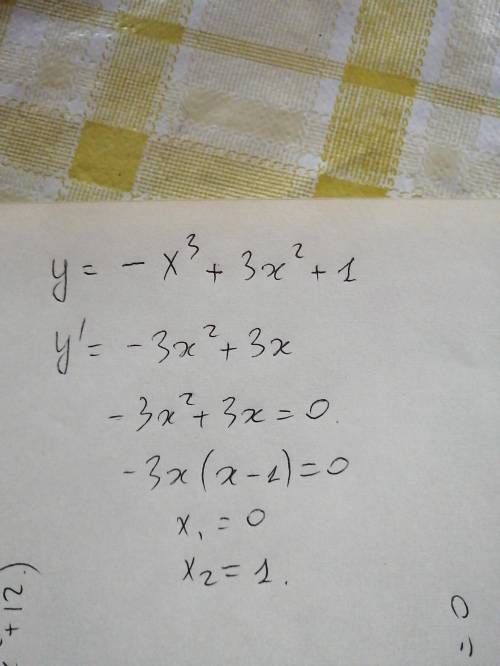 y = - x³ + 3x² + 1
y' = -3x² + 3x
-3x² + 3x = 0.
-3x (x - 1) = 0
x₁ = 0
x₂ = 1.
+ 12)
= 0